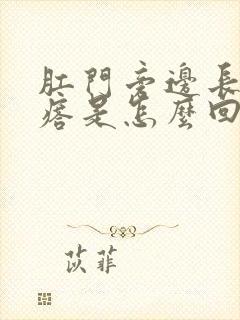 肛門旁邊長
痞是怎麼回
苡菲